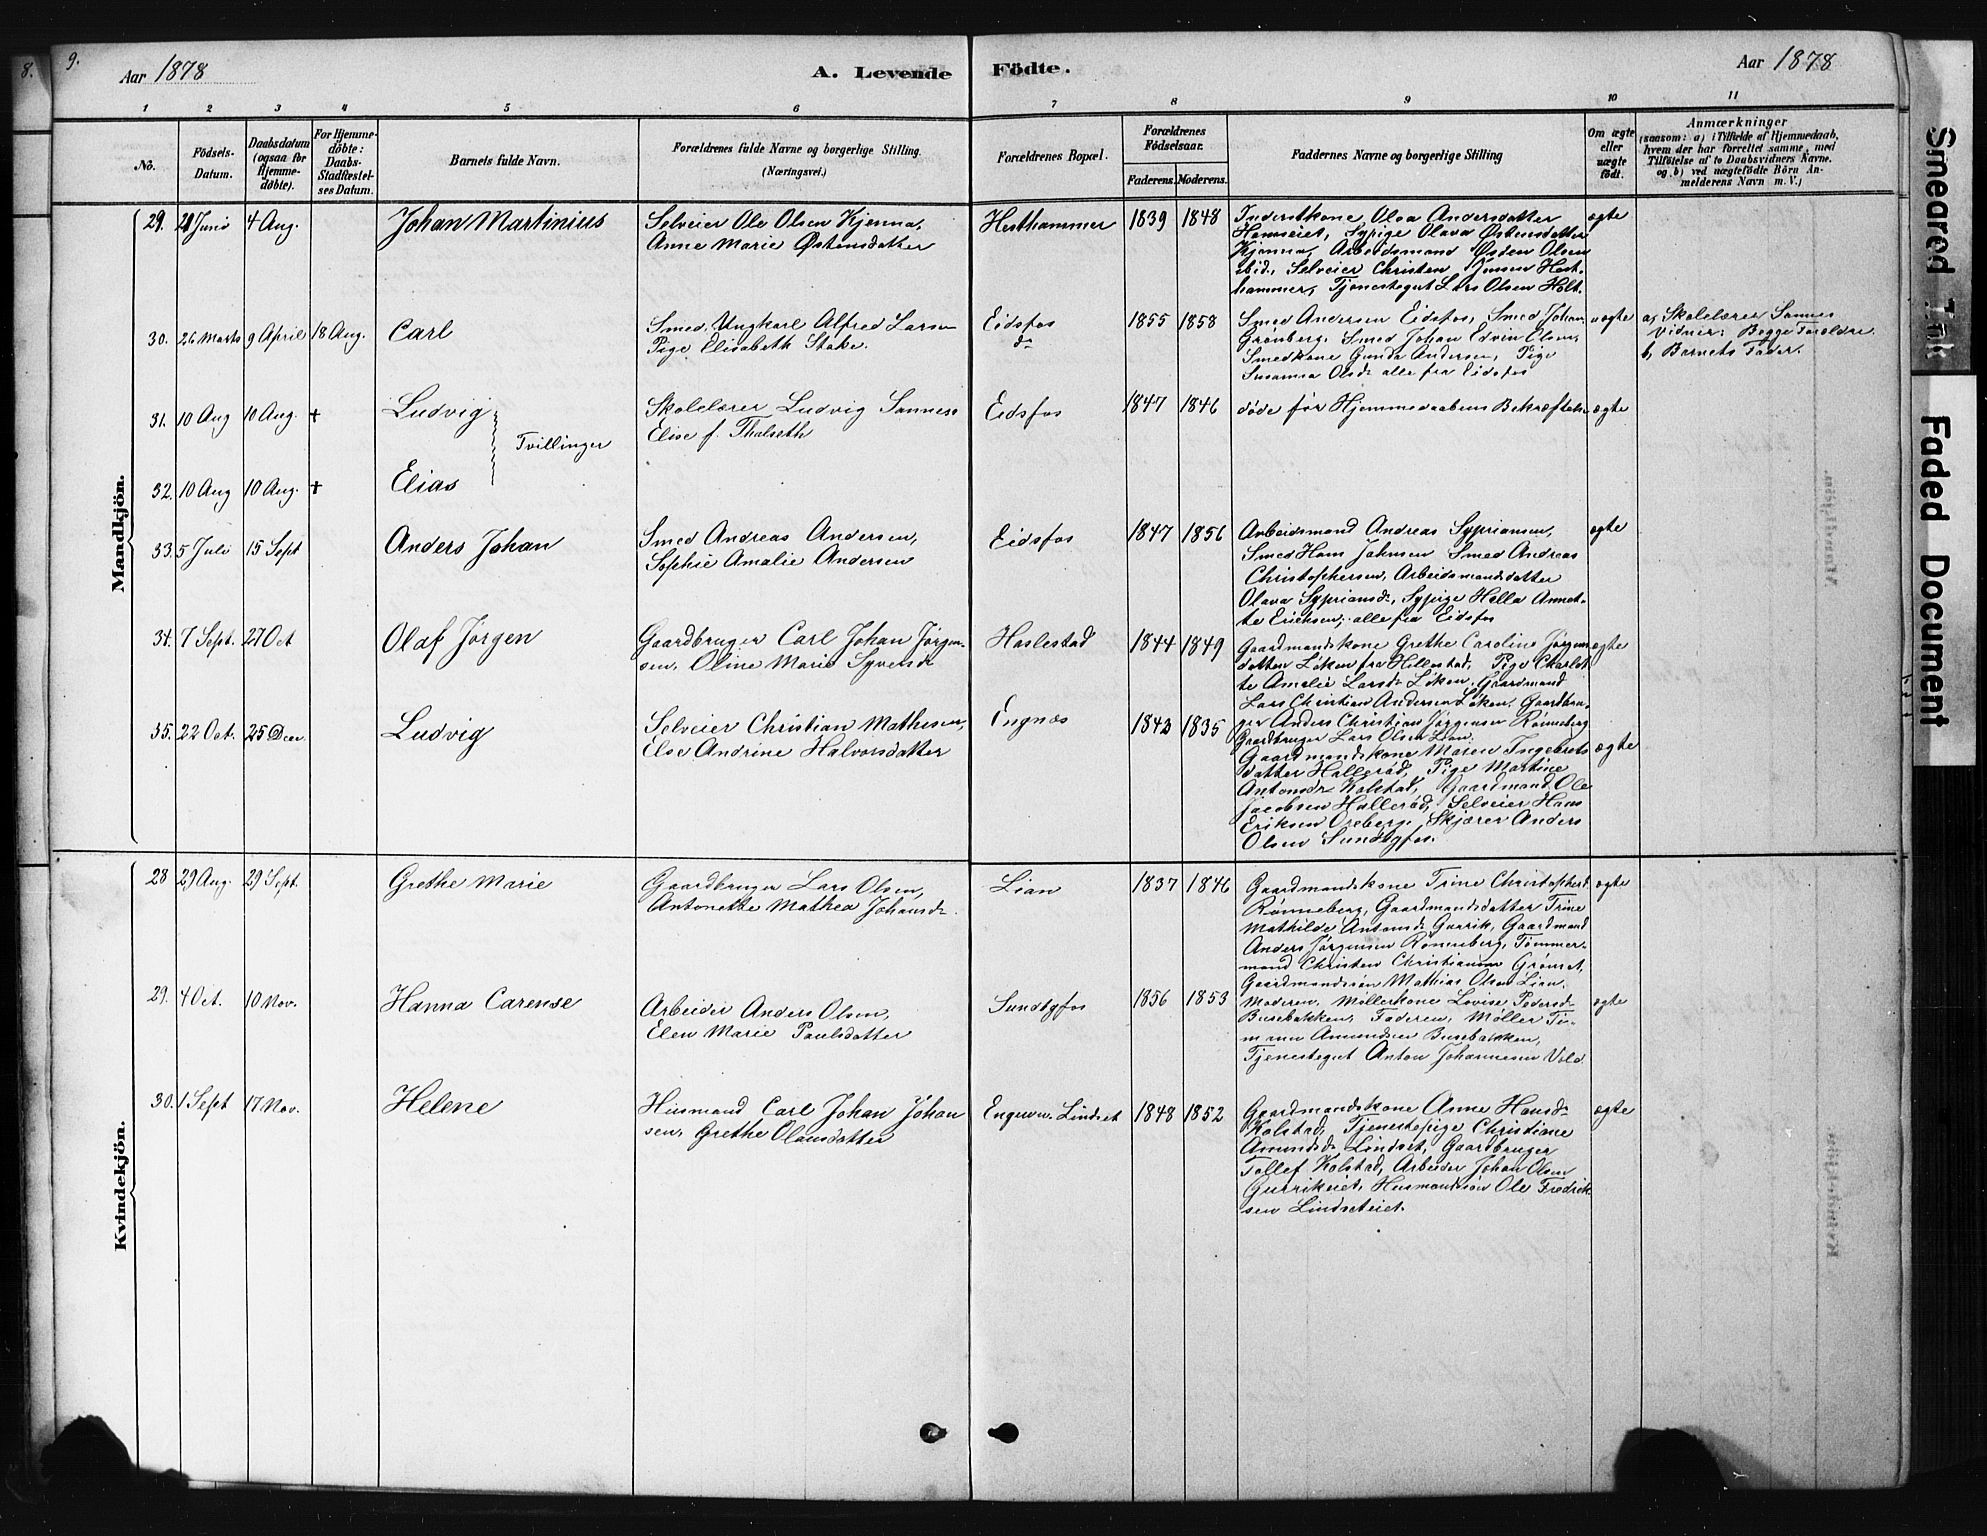 8.
9.
Aar 1878
A. Levende Födte.
Aar 1878
1 2 3 4 5 6 7 8 9 10 11
No.
Födsels-Datum.
Daabsdatum (ogsaa for Hjemme-döbte).
For Hjemme-döbte: Daabs-Stadfæstel-ses Datum.
Barnets fulde Navn.
Forældrenes fulde Navne og borgerlige Stilling (Næringsvei.)
Forældrenes Bopæl.
Forældrenes Födselsaar.
Faderens. Moderens.
Faddernes Navne og borgerlige Stilling
Om ægte eller uægte födt.
Anmærkninger
(saasom: a) i Tilfælde af Hjemmedaab,
hvem der har forrettet samme, med
Tilföielse af to Daabsvidners Navne.
og b) ved uægtefödte Börn An-
melderens Navn m. V.)
Mandkjön.
29. 21 Juni 4 Aug. Johan Martinius
Selveier Ole Olsen Kjenna,
Anne Marie Østensdatter
Hesthammer 1839 1848
Inderstkone Olea Andersdatter
Hanseiet, Sypige Olava Østensdatter
Kjenna, Arbeidsmand Østen Olsen
ibid, Selveier Christen Jensen Hest-
hammer, Tjenestegut Lars Olsen Holt.
ægte
30. 26 Marts 9 April 18 Aug. Carl
Smed, Ungkarl Alfred Larsen
Pige Elisabeth Stake.
Eidsfos
do
1855 1858
Smed Andersen Eidsfos, Smed Johan
Grønberg, Smed Johan Edvin Olsen,
Smedkone Gunda Andersen, Pige
Susanna Olsdr alle fra Eidsfos
uægte
a, Skolelærer Sannes
Vidner: Begge Forældre.
b, Barnets Fader.
31. 10 Aug 10 Aug. + Ludvig
Tvillinger
Skolelærer Ludvig Sannes
Elise f. Thalseth
Eidsfos 1847 1846
døde før Hjemmedaabens Bekræftelse
ægte
32. 10 Aug 10 Aug. + Elias
33. 5 Juli 15 Sept Anders Johan
Smed Andreas Andersen,
Sophie Amalie Andersen
Eidsfos 1847 1856
Arbeidsmand Andreas Sypriansen,
Smed Hans Johnsen Smed Andreas
Christophersen, Arbeidsmandsdatter
Olava Sypriansdr, Sypige Hella Annet-
te Eriksen; alle fra Eidsfos
ægte
34. 7 Sept. 27 Oct Olaf Jörgen
Gaardbruger Carl Johan Jørgen-
sen, Oline Marie Syversdr
Haslestad 1844 1849
Gaardmandskone Grethe Caroline Jørgens
datter Løken fra Hillestad, Pige Charlot
te Amalie Larsdr Løken, Gaardmand
Lars Christian Andersen Løken, Gaardbru-
ger Anders Christian Jørgensen Rønneberg
Gaardbruger Lars Olsen Lian.
ægte
35. 22 Oct. 25 Decr. Ludvig
Selveier Christian Mathisen,
Else Andrine Halvorsdatter
Engnæs 1843 1835
Gaardmandskone Maren Ingebrets
datter Hallerød, Pige Martine
Antonsdr Kolstad, Gaardmand Ole
Jacobsen Hallerød, Selveier Hans
Eriksen Oreberg, Skjærer Anders
Olsen Sundbyfos.
ægte
Kvindekjön.
28 29 Aug. 29 Sept. Grethe Marie
Gaardbruger Lars Olsen,
Antonette Mathea Johansdr.
Lian 1837 1846
Gaardmandskone Trine Christophersd
Rønneberg, Gaardmandsdatter Trine
Mathilde Antonsdr Gurrik, Gaardmand
Anders Jørgensen Rønneberg, Tømmer-
mand Christen Christiansen Grønset,
Gaardmandssøn Mathias Olsen Lian.
ægte
29. 4 Oct. 10 Nov. Hanna Carense
Arbeider Anders Olsen,
Elen Marie Paulsdatter
Sundbyfos 1856 1853
Moderen, Møllerkone Lovise Pedersdr
Busebakken, Faderen, Møller Ti-
mann Amundsen Busebakken,
Tjenestegut Anton Johannesen Vold
ægte
30. 1 Sept 17 Nov. Helene
Husmand Carl Johan Johan
sen, Grethe Olausdatter
Lindset 1848 1852
Gaardmandskone Anne Hansdr
Kolstad, Tjenestepige Christiane
Amundsdr Lindset, Gaardbruger
Tollef Kolstad, Arbeider Johan Olsen
Gurrikeiet, Husmandssøn Ole Fredrik
sen Lindseteiet.
ægte
Smeared Ink
Faded Document